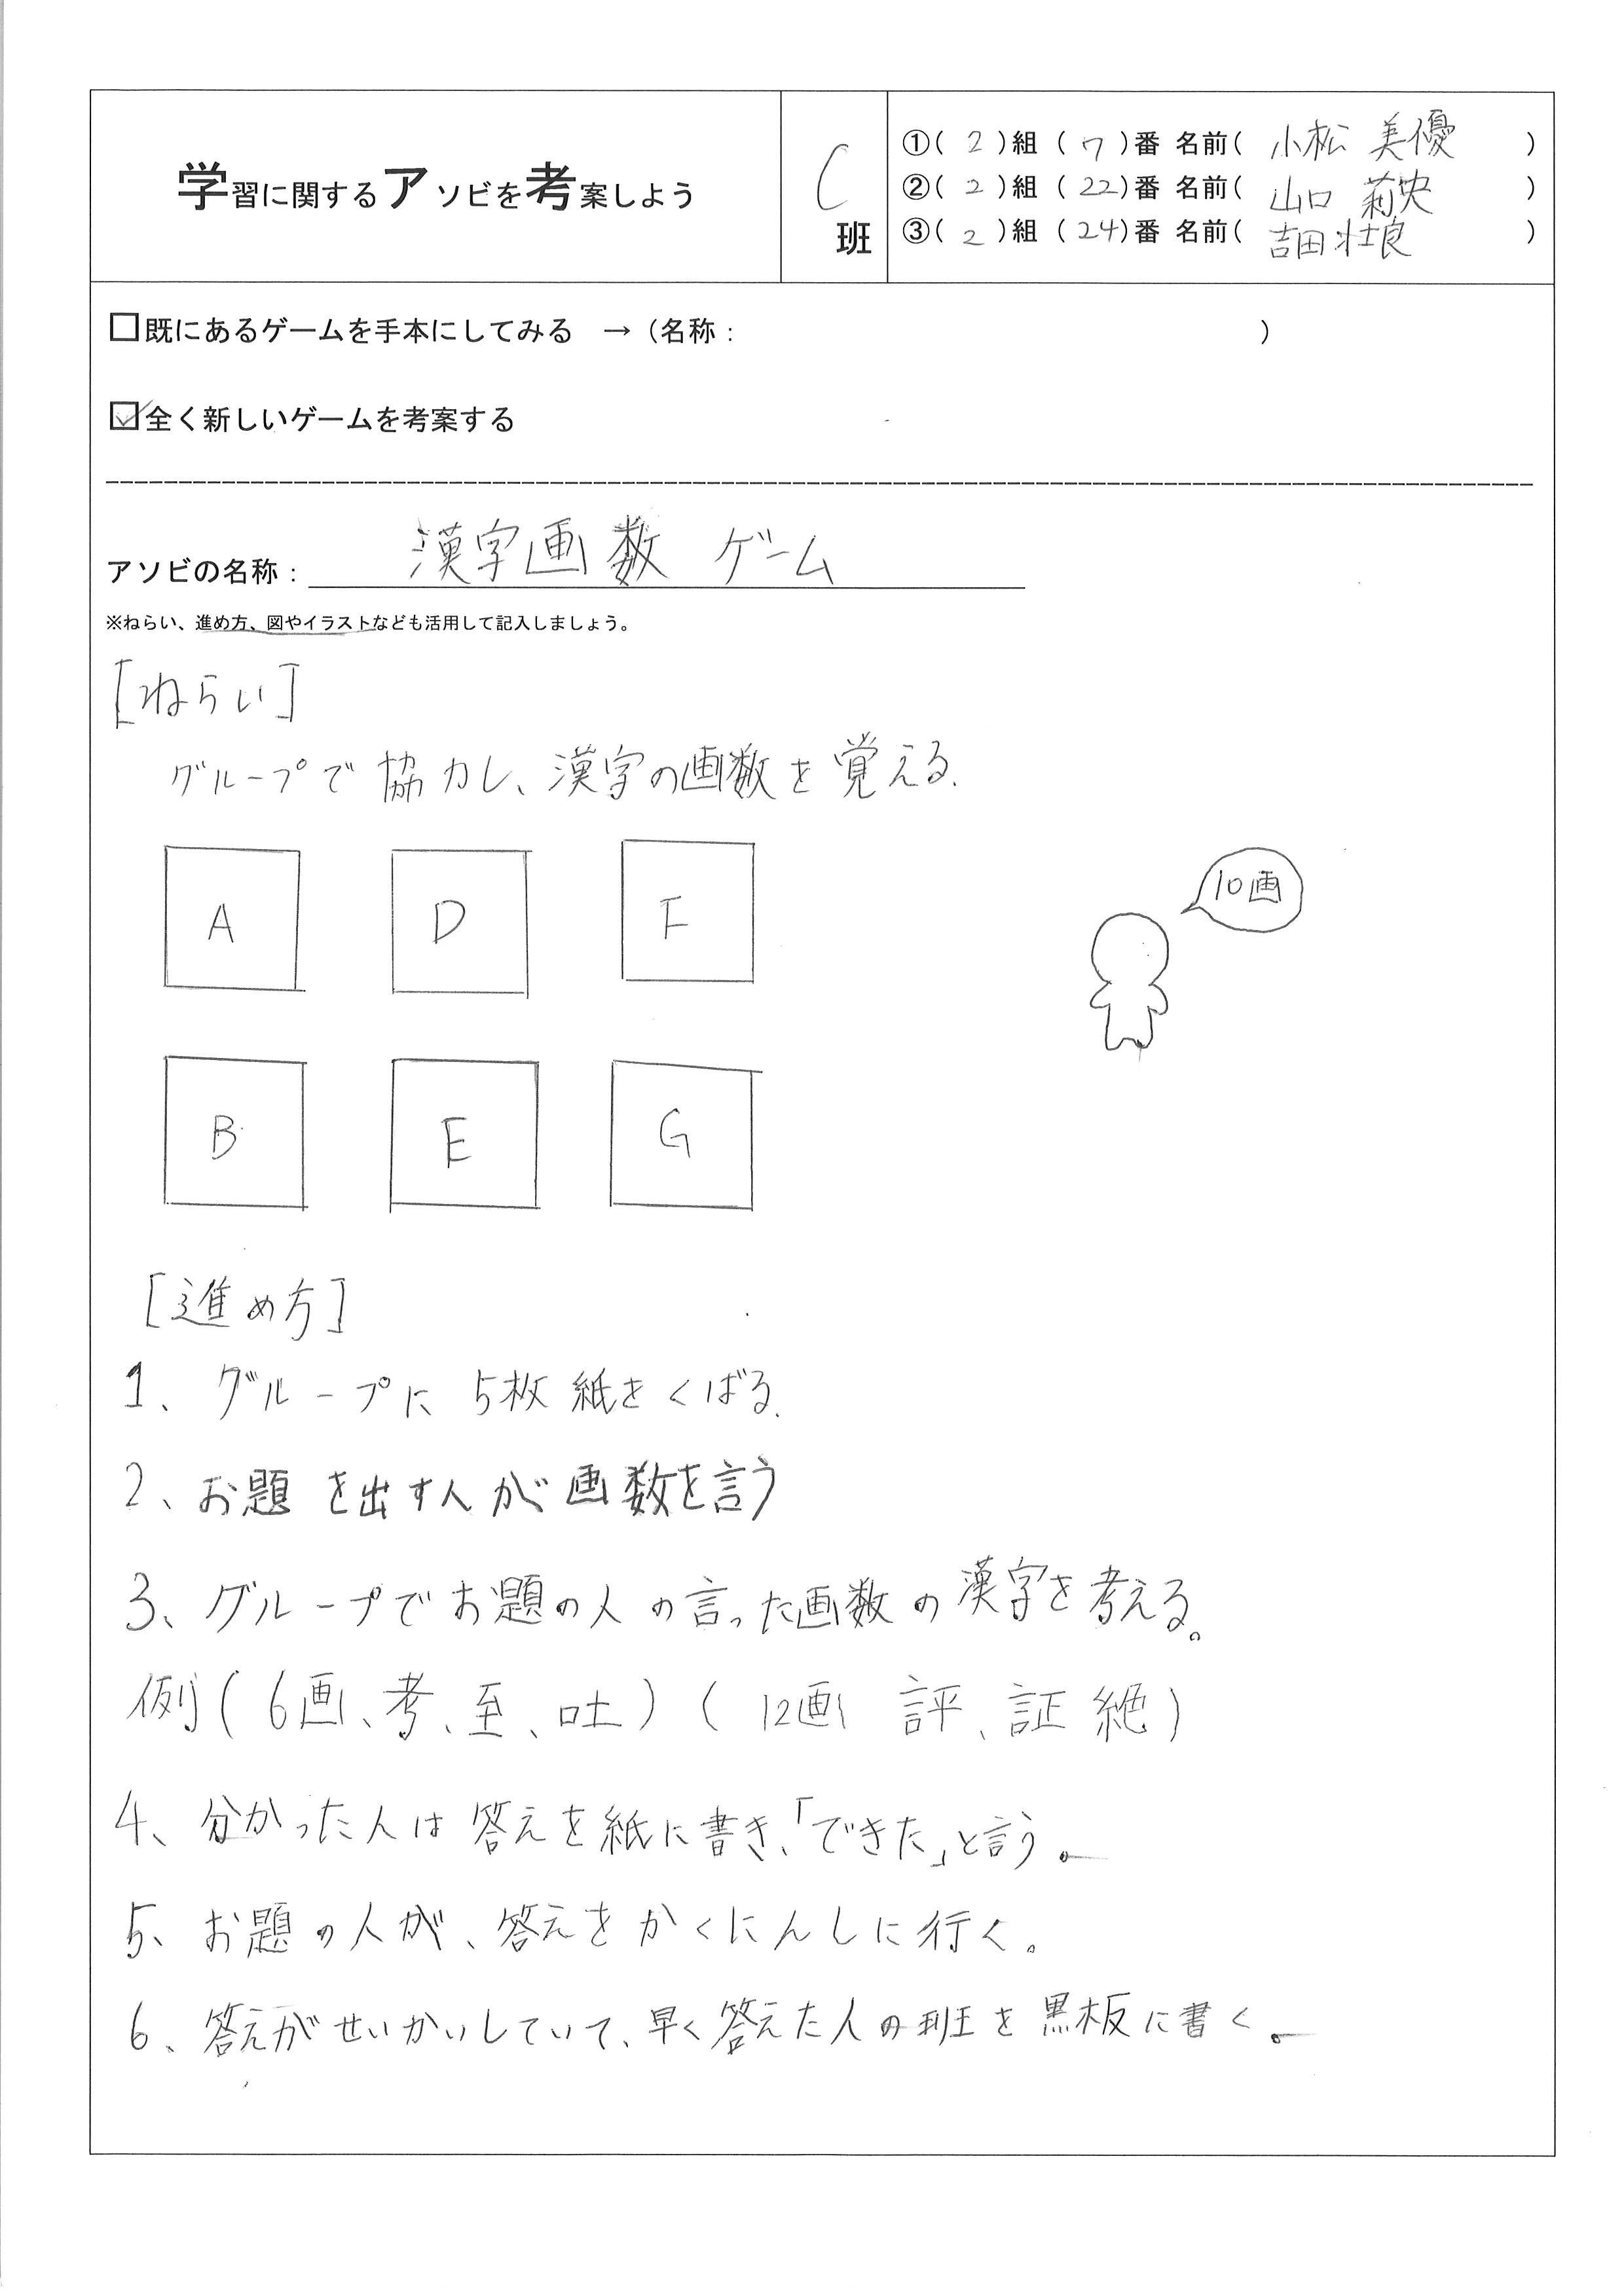 学習に関するアソビを考案しよう
C
班
①( 2 )組 ( 7 )番 名前( 小松 美優 )
②( 2 )組 ( 22 )番 名前( 山口 莉央 )
③( 2 )組 ( 24 )番 名前( 吉田壮良 )
□既にあるゲームを手本にしてみる → (名称: )
☑全く新しいゲームを考案する
アソビの名称: 漢字画数 ゲーム
※ねらい、進め方、図やイラストなども活用して記入しましょう。
[ねらい]
グループで協力し、漢字の画数を覚える.
A D F
10画
B E G
[進め方]
1、グループに5枚紙をくばる.
2、お題を出す人が画数を言う
3、グループでお題の人の言った画数の漢字を考える。
例(6画、考、至、吐) (12画 評、証 絶)
4、分かった人は答えを紙に書き、「できた」と言う。
5、お題の人が、答えをかくにんしに行く。
6、答えがせいかいしていて、早く答えた人の班を黒板に書く。